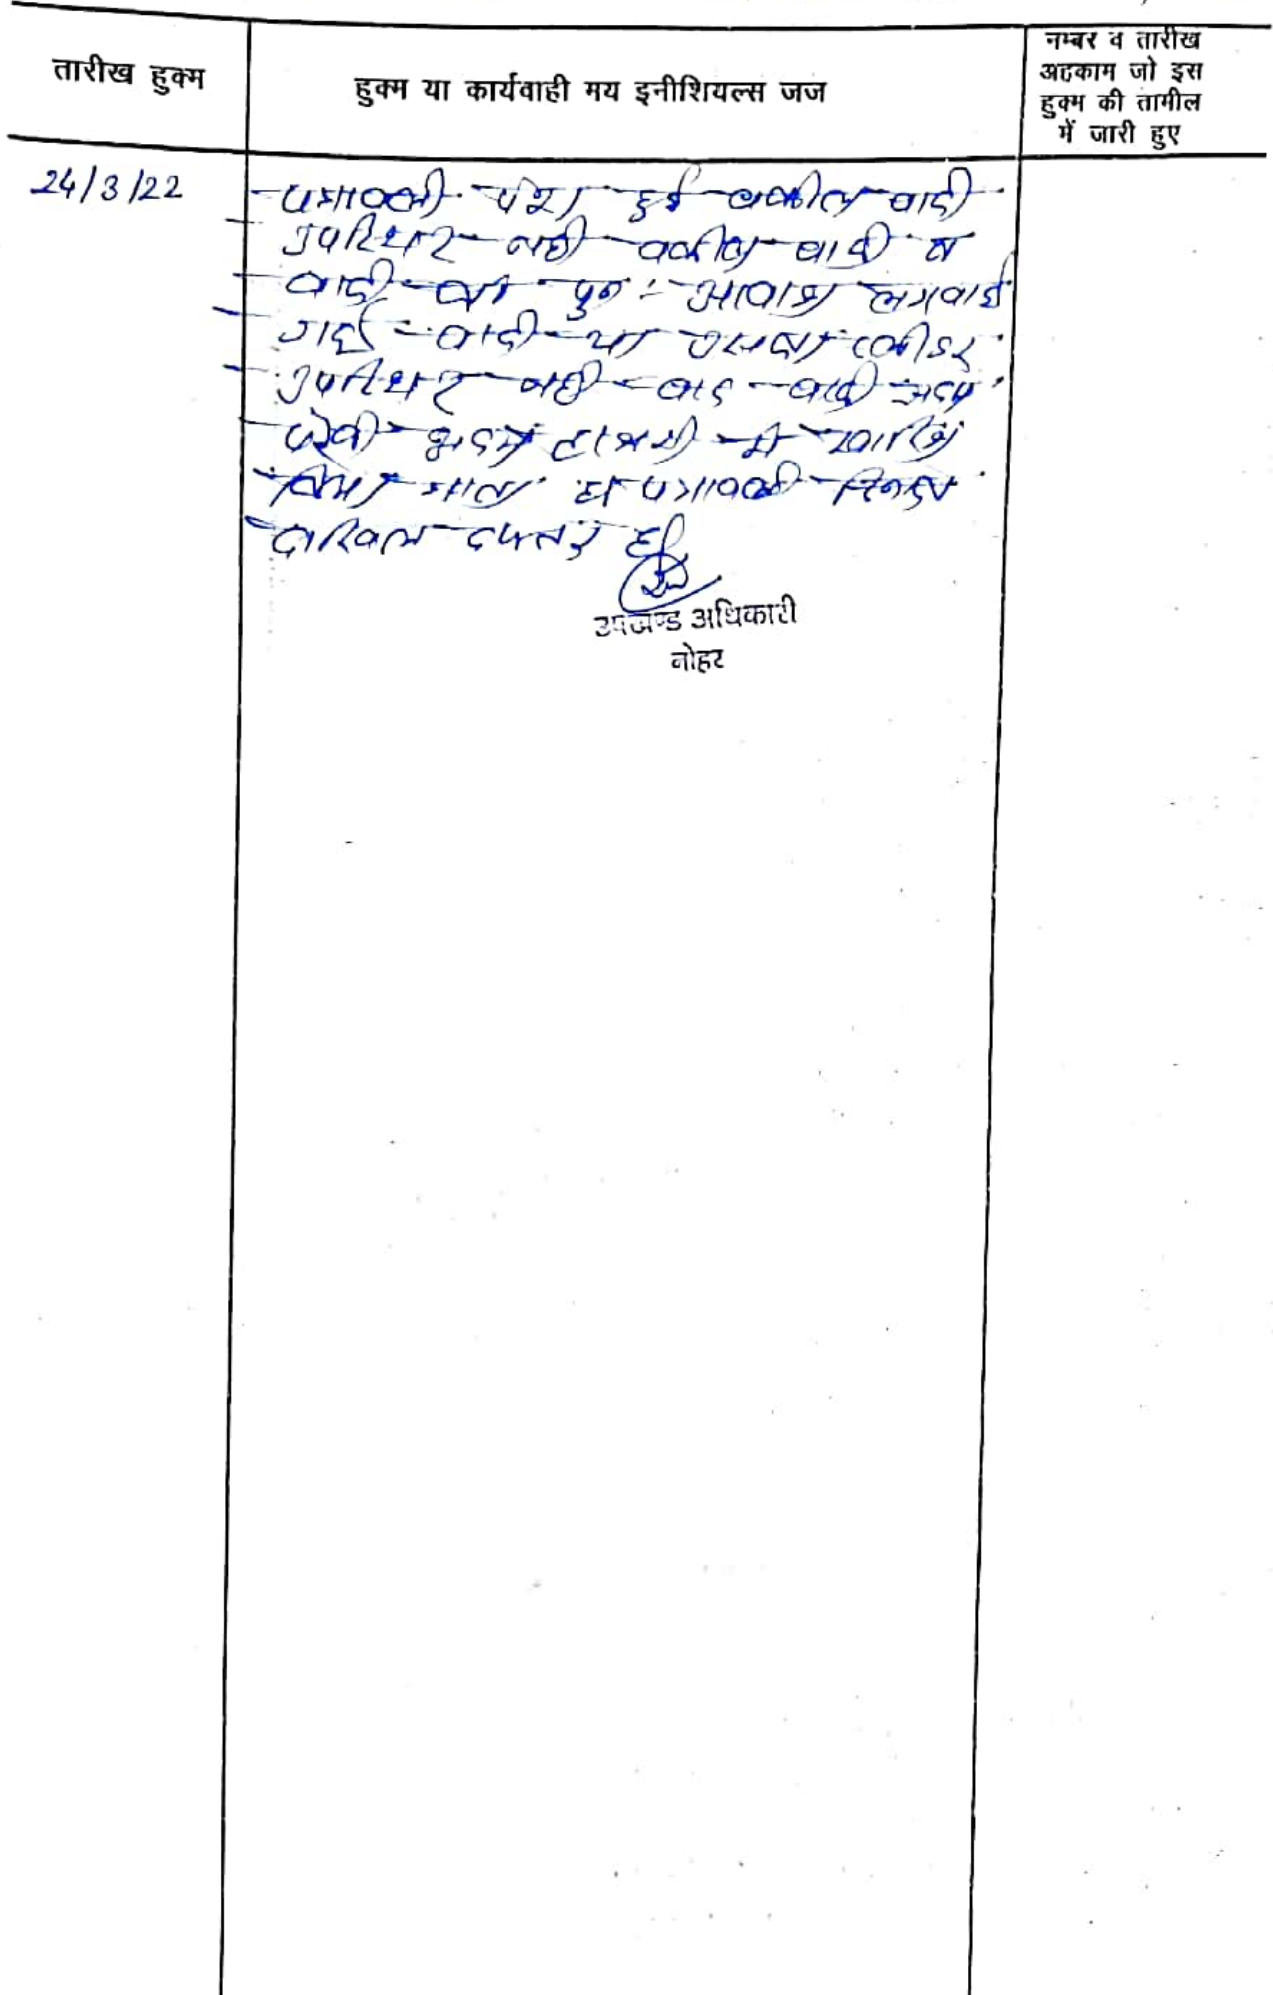 तारीख हुक्म
हुक्म या कार्यवाही मय इनीशियल्स जज
नम्बर व तारीख
अहकाम जो इस
हुक्म की तामील
में जारी हुए
24/3/22
पत्रावली पेश हुई वकील वादी
उपस्थित नही वकील वादी व
वादी को पुनः आवाज लगवाई
गई वादी या उसका प्लीडर
उपस्थित नही वाद वादी अदम
पैरवी अदम हाजरी मे खारिज
किया जाता है पत्रावली
दाखिल दफ्तर हो
उपखण्ड अधिकारी
नोहर